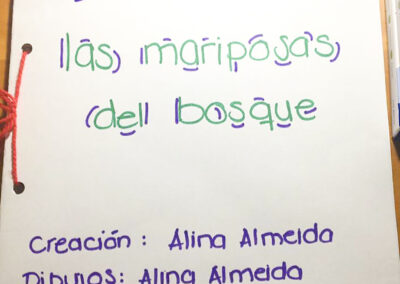 las mariposas
del bosque
Creación: Alina Almeida
Dibujos: Alina Almeida